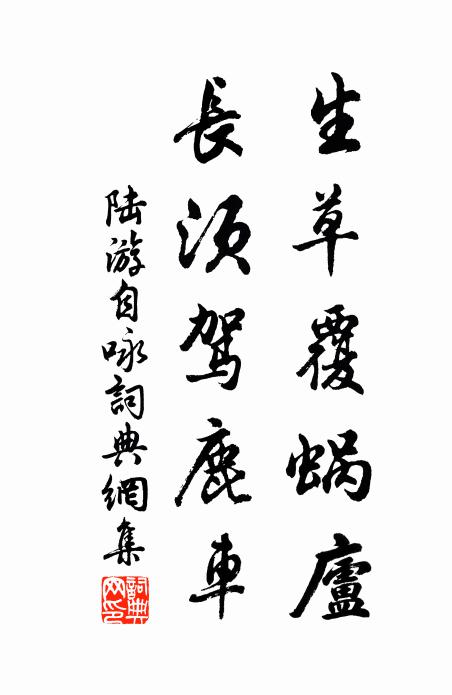 生草覆蝸廬
長須駕鹿車
陸游自咏詞典網集
詞典網印